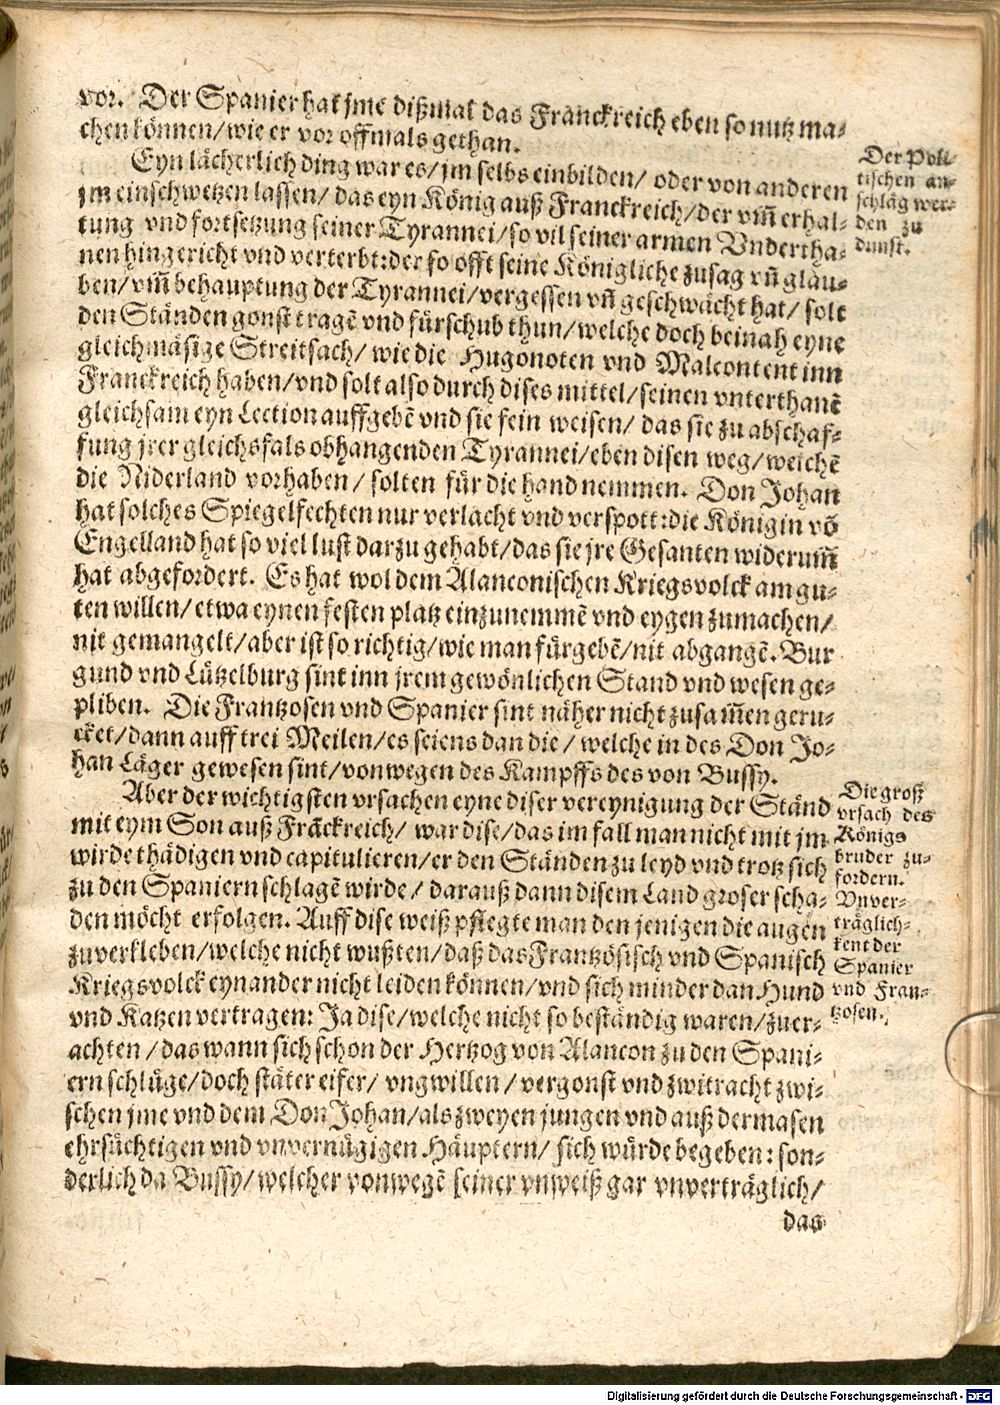 vor. Der Spanier hat jme dißmal das Franckreich eben so nutz ma-
chen können/wie er vor offmals gethan.
Eyn lächerlich ding war es/jm selbs einbilden/ oder von anderen
jm einschwetzen lassen/ das eyn König auß Franckreich/der vm̃ erhal-
tung vnd fortsetzung seiner Tyrannei/so vil seiner armen Vndertha-
nen hingericht vnd verterbt:der so offt seine Königliche zusag vñ gläu-
ben/vm̃ behauptung der Tyrannei/vergessen vñ geschwächt hat/ solt
den Ständen gonst tragẽ vnd fürschub thun/welche doch beinah eyne
gleichmäsige Streitsach/ wie die Hugonoten vnd Malcontent inn
Franckreich haben/vnd solt also durch dises mittel/seinen vnterthanẽ
gleichsam eyn Lection auffgebẽ vnd sie fein weisen/ das sie zu abschaf-
fung jrer gleichsfals obhangenden Tyrannei/eben disen weg/welchẽ
die Niderland vorhaben/ solten für die hand nemmen. Don Johan
hat solches Spiegelfechten nur verlacht vnd verspott:die Königin võ
Engelland hat so viel lust darzu gehabt/das sie jre Gesanten widerum̃
hat abgefordert. Es hat wol dem Alanconischen Kriegsvolck am gu-
ten willen/ etwa eynen festen platz einzunemmẽ vnd eygen zumachen/
nit gemangelt/aber ist so richtig/wie man fürgebẽ/nit abgangẽ. Bur
gund vnd Lützelburg sint inn jrem gewönlichen Stand vnd wesen ge-
pliben. Die Frantzosen vnd Spanier sint näher nicht zusam̃en geru-
cket/dann auff trei Meilen/es seiens dan die/ welche in des Don Jo-
han Läger gewesen sint/von wegen des Kampffs des von Bussy.
Aber der wichtigsten vrsachen eyne diser vereynigung der Ständ
mit eym Son auß Frãckreich/ war dise/das im fall man nicht mit jm
wirde thädigen vnd capitulieren/er den Ständen zu leyd vnd trotz sich
zu den Spaniern schlagẽ wirde/ darauß dann disem Land groser scha-
den möcht erfolgen. Auff dise weiß pflegte man den jenigen die augen
zuverkleben/welche nicht wußten/daß das Frantzösisch vnd Spanisch
Kriegsvolck eynander nicht leiden können/vnd sich minder dan Hund
vnd Katzen vertragen: Ja dise/welche nicht so beständig waren/zuer-
achten/das wann sich schon der Hertzog von Alancon zu den Spani-
ern schlüge/doch stäter eifer/ vngwillen/ vergonst vnd zwitracht zwi-
schen jme vnd dem Don Johan/als zweyen jungen vnd auß dermasen
ehrsüchtigen vnd vnvernügigen Häuptern/ sich würde begeben: son-
derlich da Bussy/welcher vonwegẽ seiner vnweiß gar vnverträglich/
das
Der Poli-
tischen an-
schläg wer-
den zu
dunst.
Die groß
vrsach des
Königs
bruder zu-
fordern.
Vnver-
träglich-
keyt der
Spanier
vnd Fran-
tzosen.
Digitalisierung gefördert durch die Deutsche Forschungsgemeinschaft - DFG